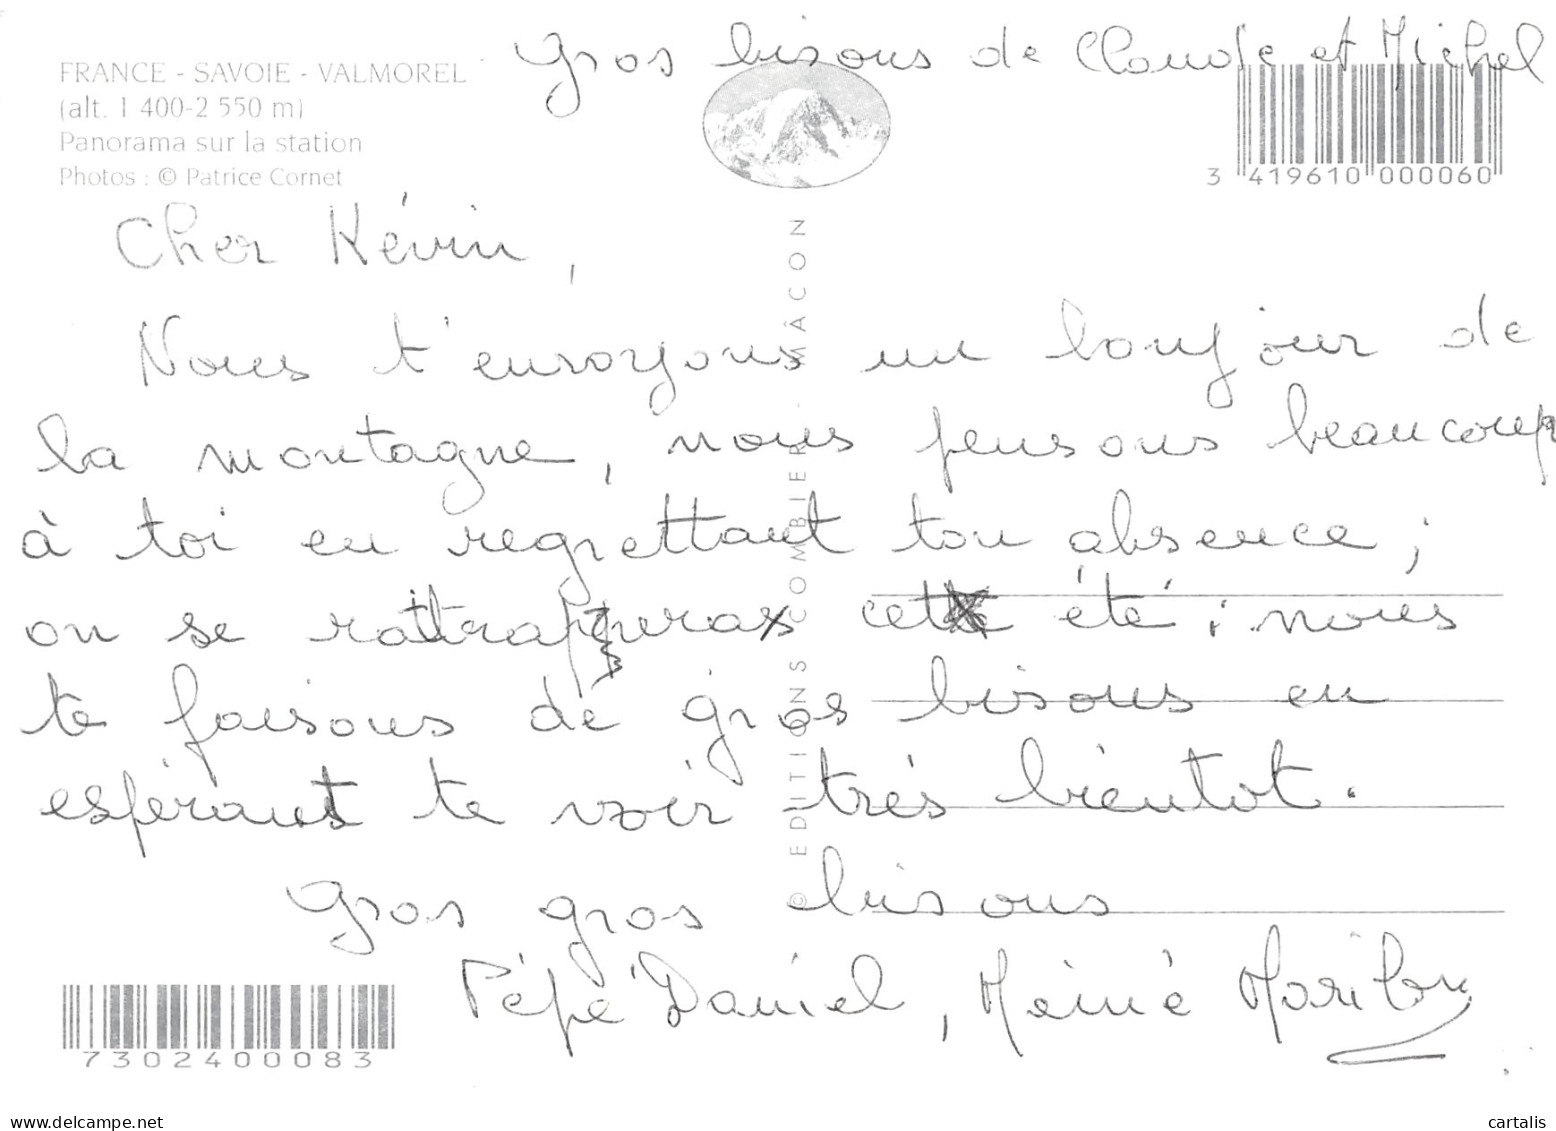 Gros bisous de Claude et Michel
FRANCE - SAVOIE - VALMOREL
(alt. 1 400-2 550 m)
Panorama sur la station
Photos : © Patrice Cornet
3 419610 000060
Cher Kévin,
Nous t'envoyons un bonjour de
la montagne, nous pensons beaucoup
à toi en regrettant ton absence ;
on se rattrapera cet été ; nous
te faisons de gros bisous en
espérant te voir très bientot.
Gros gros bisous
Pépé Daniel, Mémé Marilou
© EDITIONS COMBIER MÂCON
7302400083
www.cartalis.com
cartalis